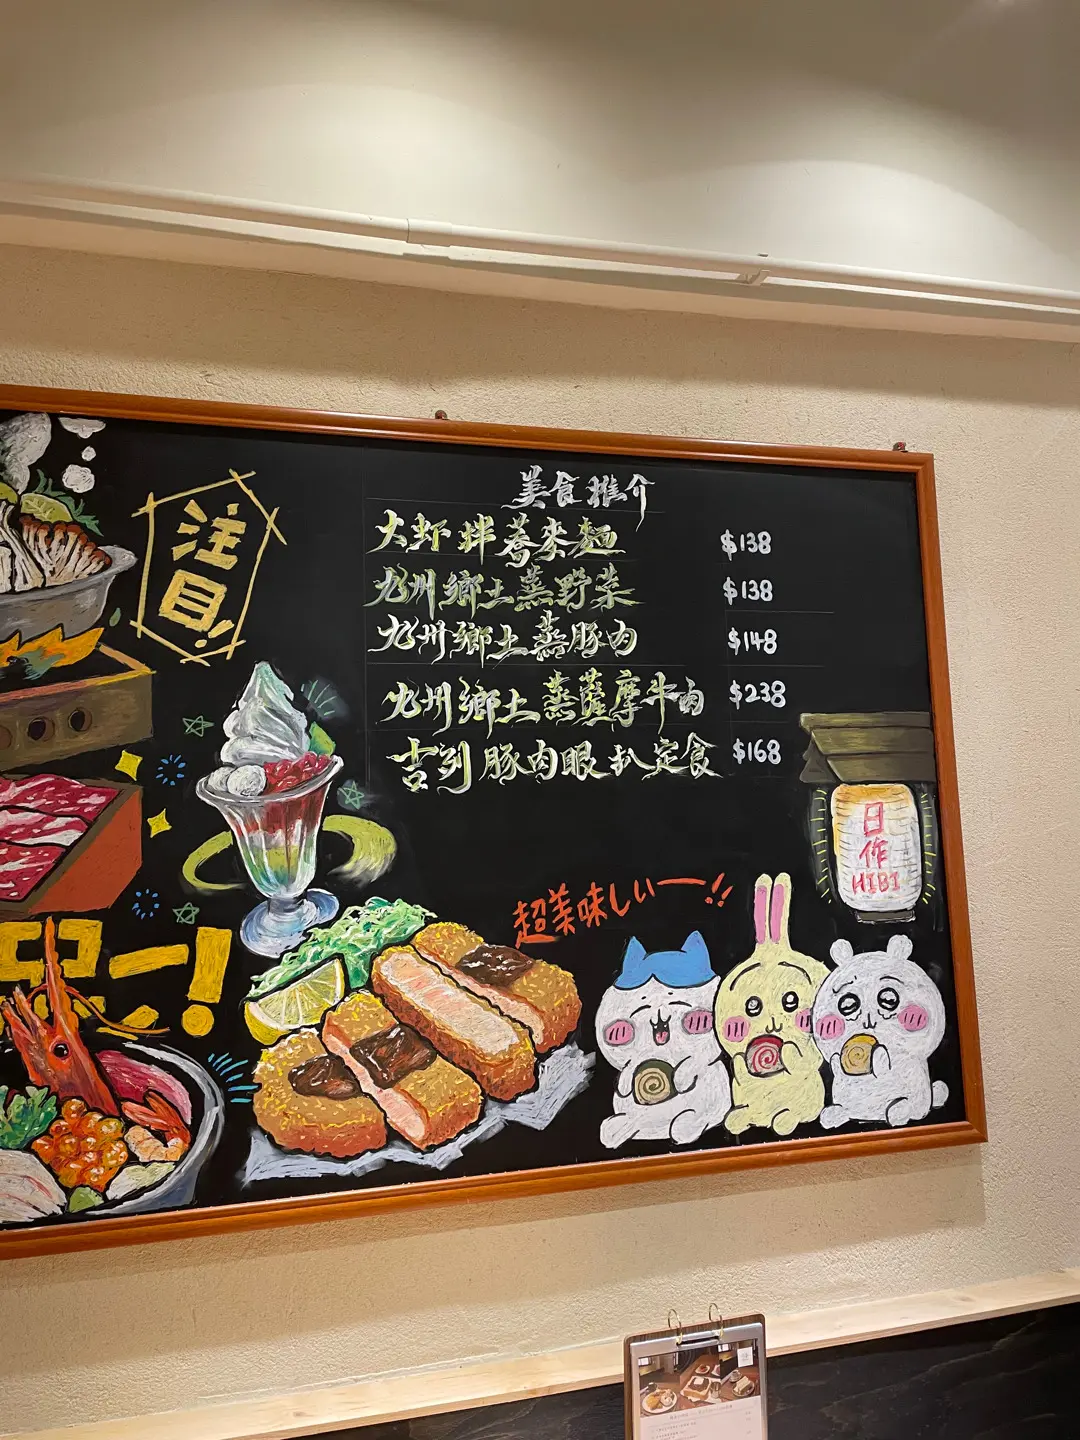 注
目!
美食推介
大虾拌蕎麥麵 $138
九州鄉土蒸野菜 $138
九州鄉土蒸豚肉 $148
九州鄉土蒸薩摩牛肉 $238
吉列豚肉眼扒定食 $168
日
作
HIBI
超美味しいー!!